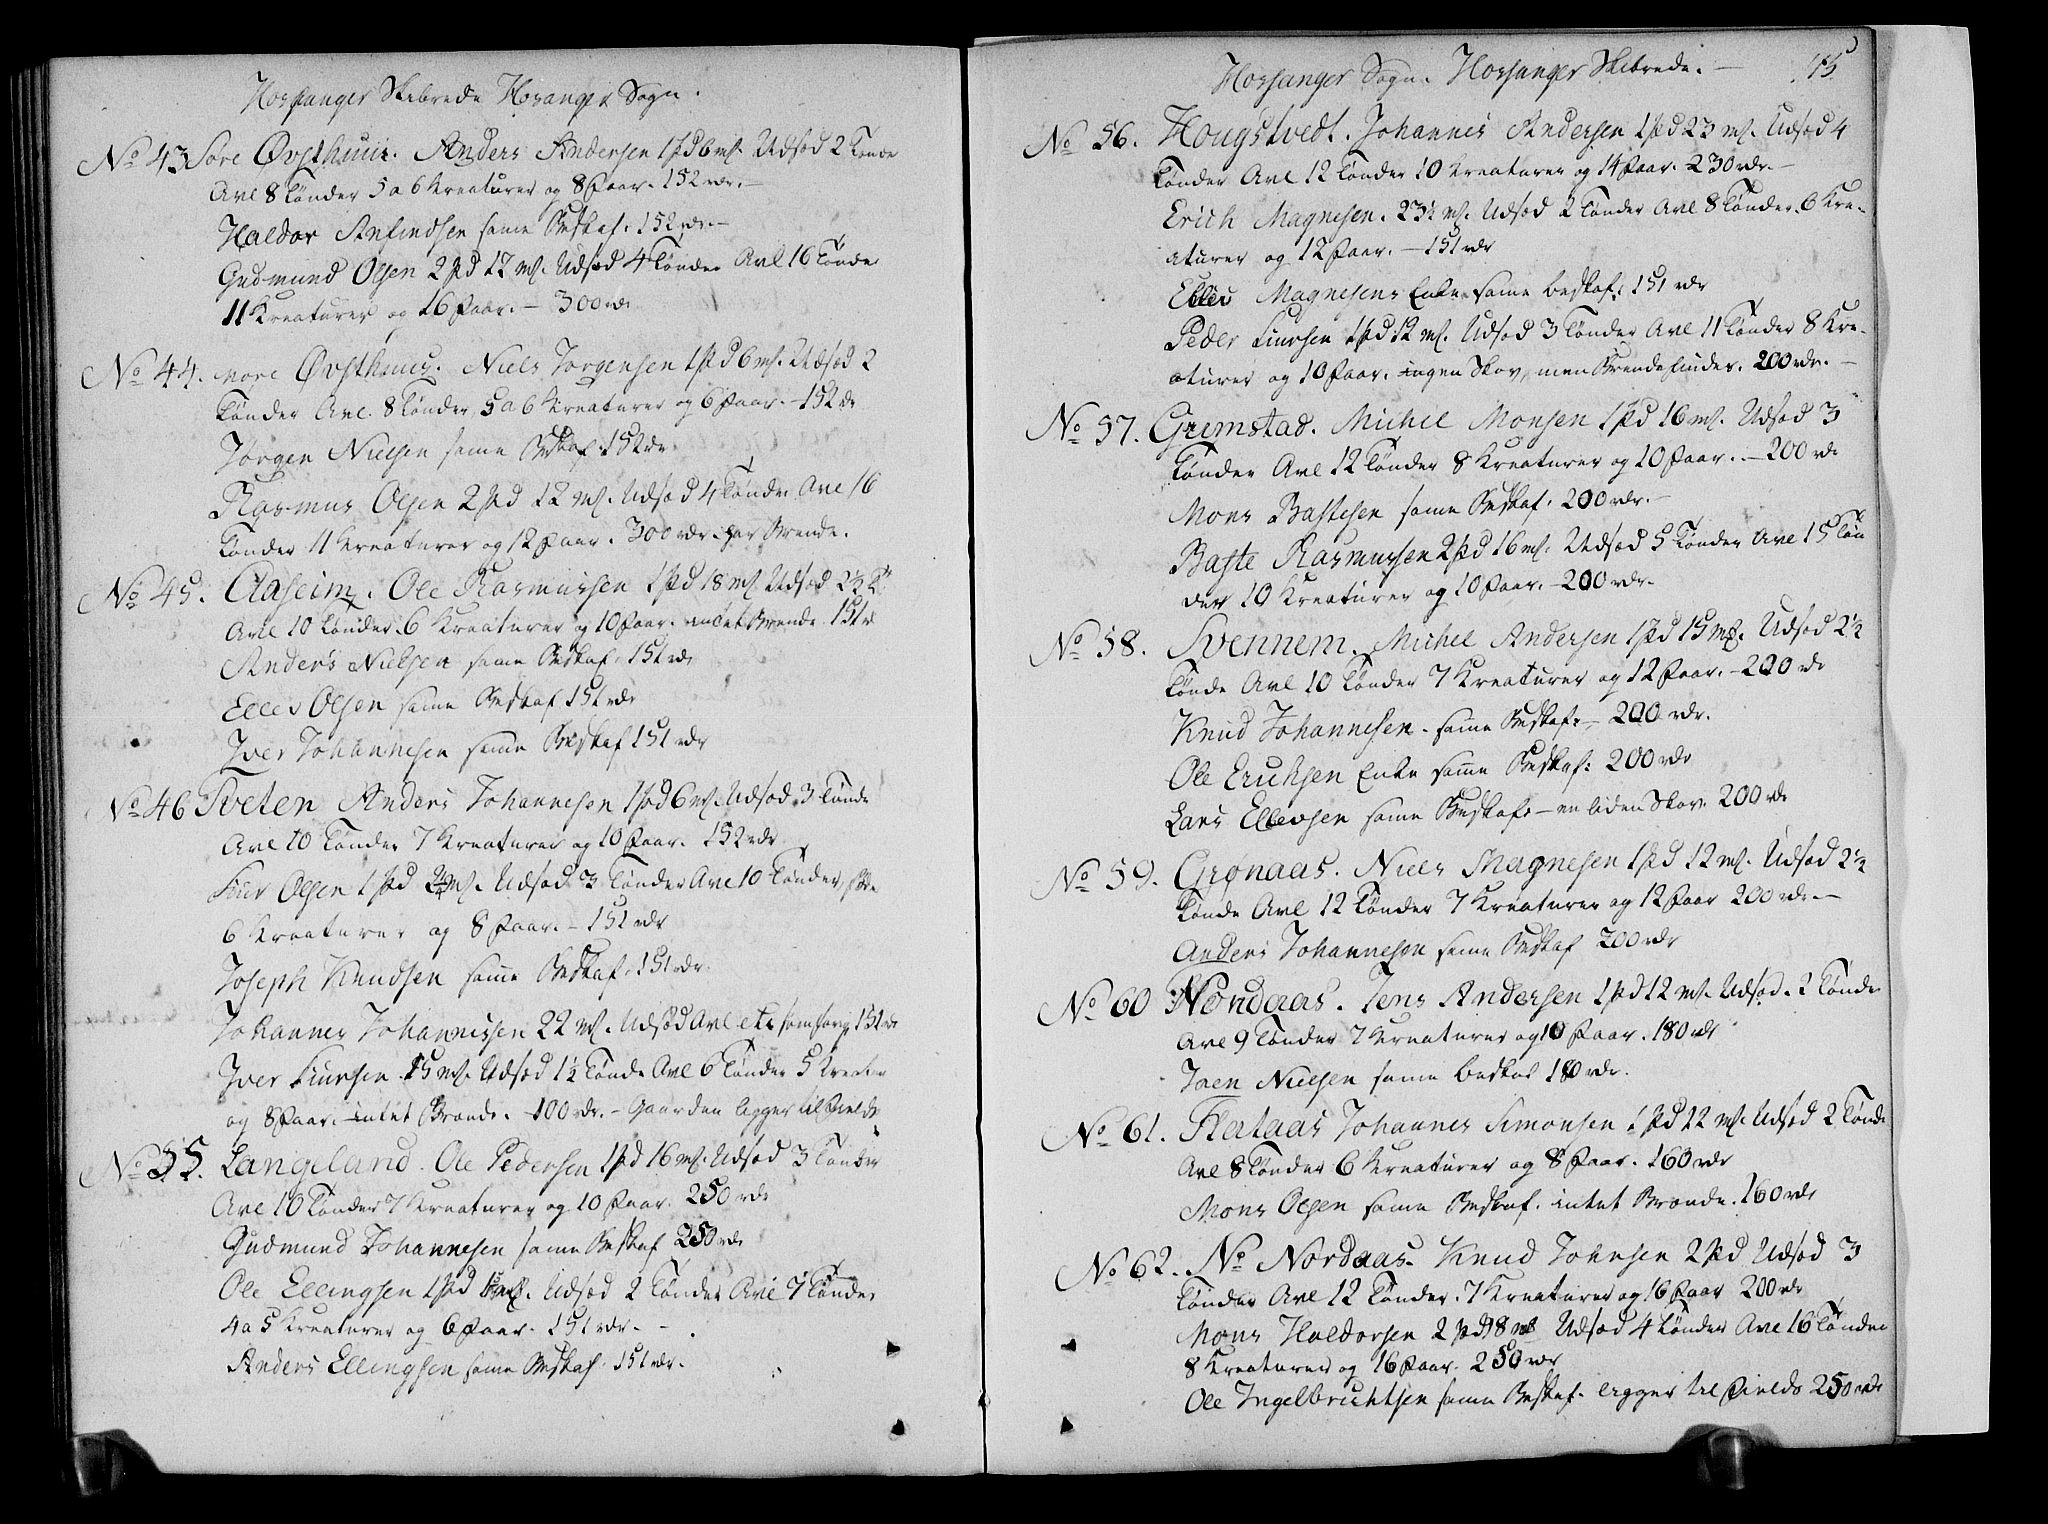 Hossanger Skibrede Hosanger Sogn.
No 43 Sore Øvsthuus. Anders Andersen 1 pd 6 mk. Udsød 2 Tønde
Avl 8 Tønder 5 a 6 Kreaturer og 8 Faar. 152 rdr. —
Haldor Anfindsen same Beskaf. 152 rdr. —
Gudmund Olsen 2 pd 12 mk. Udsød 4 Tønder Avl 16 Tønder
11 Kreaturer og 16 Faar. — 300 rdr
No 44. Nore Øvsthuus. Niels Jorgensen 1 pd 6 mk. Udsød 2
Tønder Avl. 8 Tønder 5 a 6 Kreaturer og 6 Faar. — 152 rdr
Jørgen Nielsen same Beskaf. 152 rdr
Rasmus Olsen 2 pd 12 mk. Udsød 4 Tønder Avl 16
Tønder 11 Kreaturer og 12 Faar. 300 rdr. har Brende.
No 45. Aaseim. Ole Rasmussen 1 pd 18 mk Udsød 2½ T.
Avl 10 Tønder. 6 Kreaturer og 10 Faar. intet Brende 151 r
Anders Nielsen same Beskaf. 151 rdr
Ellev Olsen same Beskaf 151 rdr
Iver Johannesen same Beskaf 151 rdr
No 46 Tveten Anders Johannesen 1 pd 6 mk. Udsød 3 Tønde
Avl 10 Tønder 7 Kreaturer og 10 Faar. 152 rdr
Siur Olsen 1 pd mk. Udsød 3 Tønder Avl 10 Tønder,
6 Kreaturer og 8 Faar. — 151 rdr
Joseph Knudsen same Beskaf. 151 rdr.
Johannes Johannessen 22 mk. Udsød Avl etc som forig 151 rdr
Iver Siursen 15 mk. Udsød 1½ Tønde Avl 6 Tønder 5 Kreatur
og 8 Faar. intet Brende. 100 rdr. — Gaarden ligger til Fields
No 55. Langeland. Ole Pedersen 1 pd 16 mk. Udsød 3 Tønder
Avl 10 Tønder 7 Kreaturer og 10 Faar. 250 rdr
Gudmund Johannesen same Beskaf 250 rdr
Ole Ellingsen 1 pd mk. Udsød 2 Tønder Avl 7 Tønder
4 a 5 Kreaturer og 6 Faar. 151 rdr. —
Anders Ellingsen same Beskaf. 151 rdr.
Hossanger Sogn. Hossanger Skibrede. — 45
No 56. Hougstvedt. Johannes Andersen 1 pd 23 mk. Udsød 4
Tønder Avl 12 Tønder 10 Kreaturer og 14 Faar. 230 rdr. —
Erich Magnesen. 23½ mk. Udsød 2 Tønder Avl 8 Tønder. 6 Kre-
aturer og 12 Faar. — 151 rdr
Ellev Magnesens Enke same beskaf: 151 rdr
Peder Siursen 1 pd 12 mk. Udsød 3 Tønder Avl 11 Tønder 8 Kre-
aturer og 10 Faar. ingen Skov, men Brendehinder. 200 rdr. —
No 57. Grimstad. Michel Monsen 1 pd 16 mk. Udsød 3
Tønder Avl 12 Tønder 8 Kreaturer og 10 Faar. — 200 rdr
Mons Bastesen same Beskaf. 200 rdr. —
Baste Rasmussen 2 pd 16 mk. Udsød 5 Tønder Avl 15 Tøn
der 10 Kreaturer og 10 Faar. — 200 rdr.
No 58. Svennem. Michel Andersen 1 pd 15 mk. Udsød 2½
Tønde Avl 10 Tønder 7 Kreaturer og 12 Faar. — 200 rdr
Knud Johannesen. same Beskaf. — 200 rdr.
Ole Erichsen Enke same Beskaf: 200 rdr
Lars Ellevsen same Beskaf. — en liden Skov. 200 rdr
No 59. Gronaas. Niels Magnesen 1 pd 12 mk. Udsød 2½
Tønde Avl 12 Tønder 7 Kreaturer og 12 Faar 200 rdr. —
Anders Johannesen same Beskaf 200 rdr
No 60 Nondaas. Jens Andersen 1 pd 12 mk. Udsød. 2 Tønder
Avl 9 Tønder 7 Kreaturer og 10 Faar. 180 rdr
Joen Nielsen same beskaf 180 rdr.
No 61. Flataas Johannes Simonsen 1 pd 12 mk. Udsød 2 Tønde
Avl 8 Tønder 6 Kreaturer og 8 Faar. 160 rdr
Mons Olsen same Beskaf. intet Brende. 160 rdr
No 62. No Nordaas. Knud Johnsen 2 pd Udsød 3
Tønder Avl 12 Tønder. 7 Kreaturer og 16 Faar 200 rdr
Mons Haldorsen 2 pd 18 mk Udsød 4 Tønder Avl 16 Tønder
8 Kreaturer og 16 Faar. 250 rdr
Ole Ingelbrichtsen same Beskaf. ligger til Fields 250 rdr